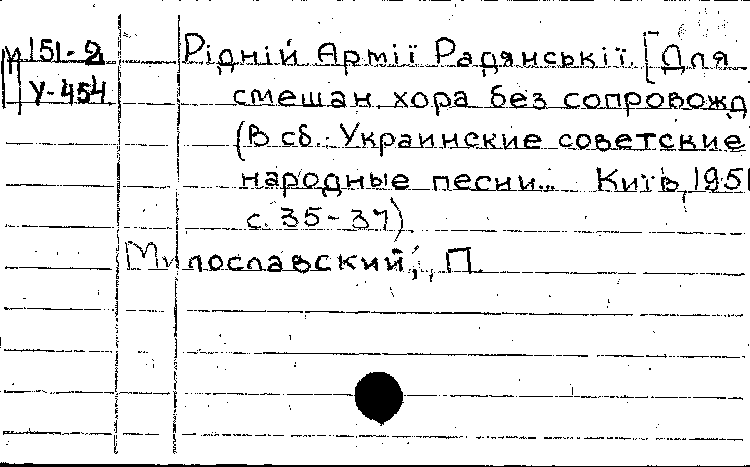 М 51-2 Рідній Армії Радянськії. [Для
У-454 смешан. хора без сопровожд
(В сб.: Украинские советские
народные песни... Київ, 1951
с. 35-37).
Милославский, П.